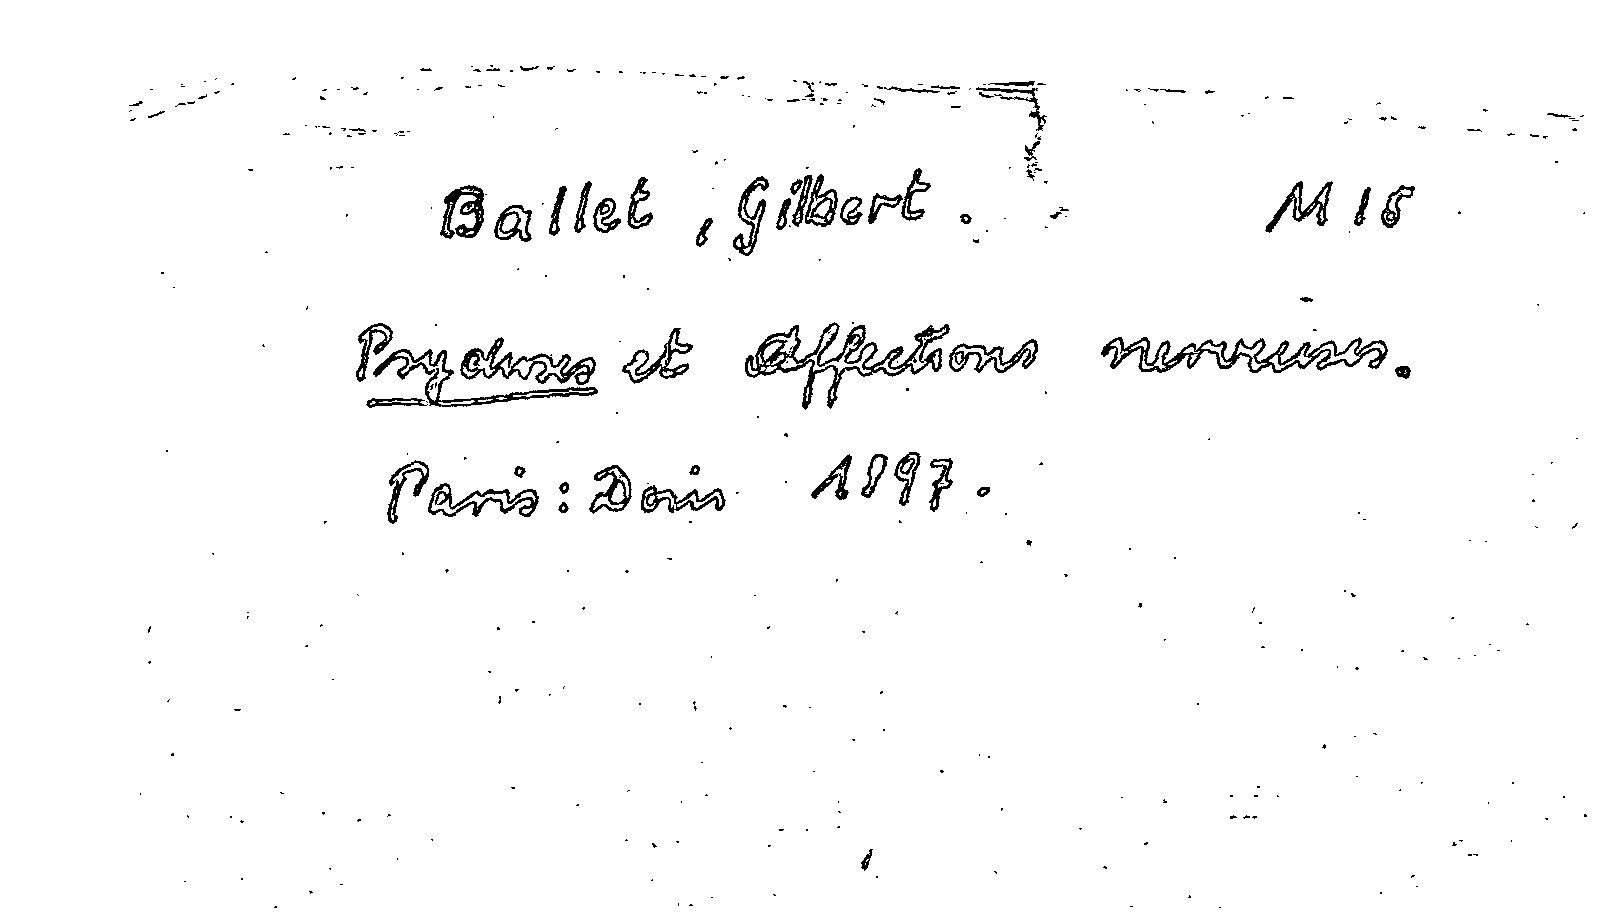 Ballet, Gilbert. M 15
Psychoses et Affections nerveuses.
Paris: Doin 1897.